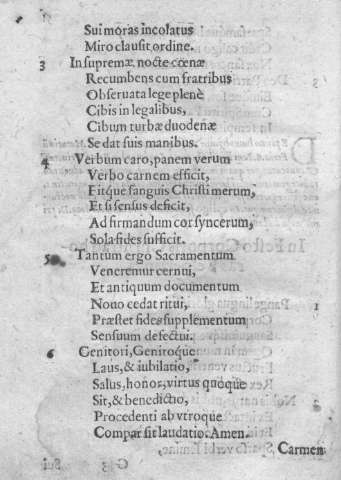 Sui moras incolatus
Miro clausit ordine.
3 In supremæ nocte cœnæ
Recumbens cum fratribus
Obseruata lege plenè
Cibis in legalibus,
Cibum turbæ duodenæ
Se dat suis manibus.
4 Verbum caro, panem verum
Verbo carnem efficit,
Fitque sanguis Christi merum,
Et si sensus deficit,
Ad firmandum cor syncerum,
Sola fides sufficit.
5 Tantum ergo Sacramentum
Veneremur cernui,
Et antiquum documentum
Nouo cedat ritui,
Præstet fides supplementum
Sensuum defectui.
6 Genitori, Genitoque
Laus, & iubilatio,
Salus, honor, virtus quoque
Sit, & benedictio,
Procedenti ab vtroque
Compar sit laudatio. Amen.
Carmen